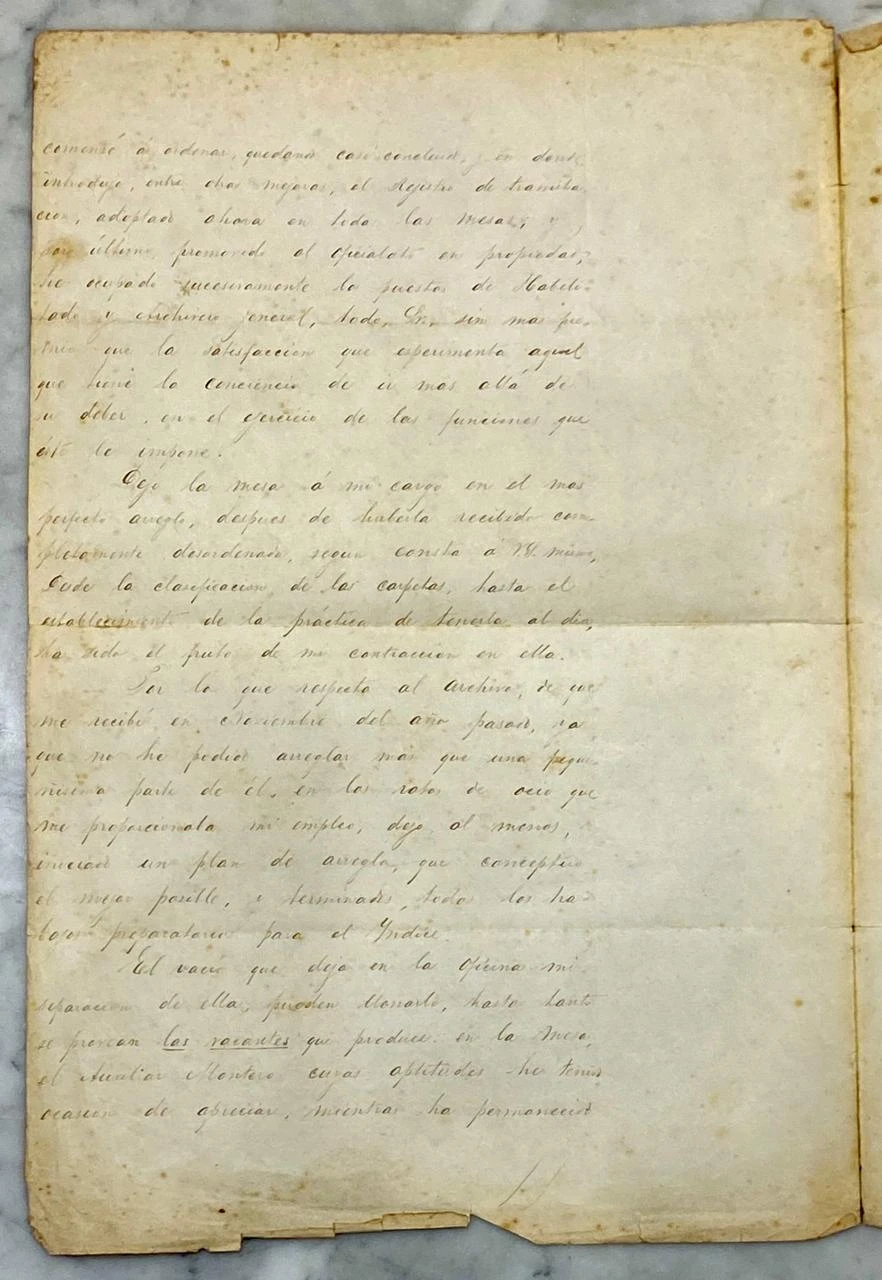 comencé á ordenar, quedando casi concluido, y en donde
introduje, entre otras mejoras, el Registro de tramita-
cion, adoptado ahora en todas las mesas; y
por último, promovido al oficialato en propiedad,
he ocupado sucesivamente los puestos de Habili-
tado y Archivero general, todo, Sr., sin mas pre-
mio que la satisfaccion que esperimenta aquel
que tiene la conciencia de ir mas allá de
su deber, en el ejercicio de las funciones que
éste le impone.
Dejo la mesa á mi cargo en el mas
perfecto arreglo, despues de haberla recibido com-
pletamente desordenada, segun consta á VS. mismo,
Desde la clasificacion, de las carpetas, hasta el
establecimiento de la práctica de tenerla al dia,
ha sido el fruto de mi contraccion en ella.
Por lo que respecta al archivo, de que
me recibí en Noviembre del año pasado, ya
que no he podido arreglar más que una peque-
ñisima parte de él, en los ratos de ocio que
me proporcionaba mi empleo, dejo al menos,
iniciado un plan de arreglo, que conceptúo
el mejor posible, y terminados, todos los tra-
bajos preparatorios para el Yndice.
El vacio que deja en la oficina mi
separacion de ella, pueden llenarlo, hasta tanto
se provean las vacantes que produce: en la mesa,
el Auxiliar Montero cuyas aptitudes he tenido
ocasion de apreciar, mientras ha permanecido